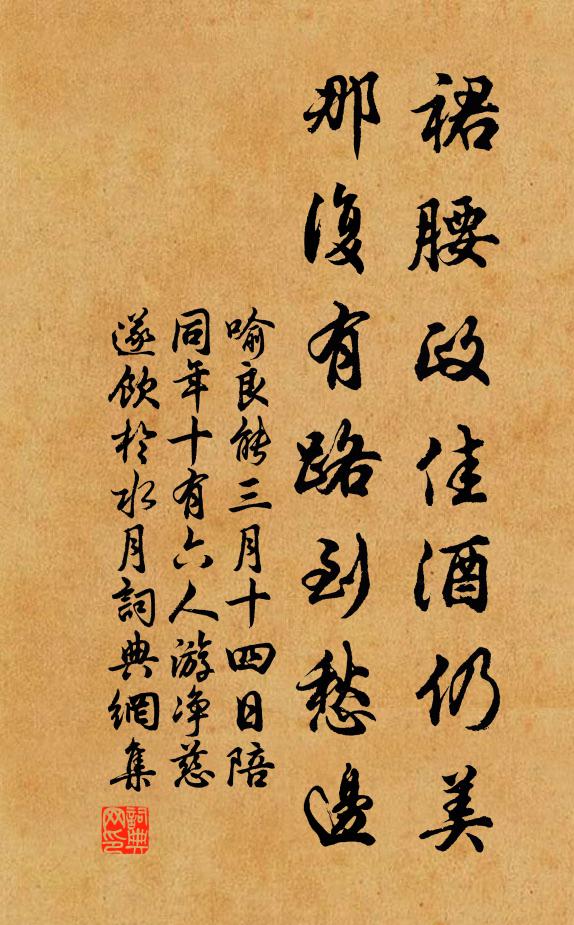 裙腰政佳酒仍美
那復有路到愁邊
喻良能三月十四日陪
同年十有六人游净慈
遂飲於水月詞典網集
詞典网印